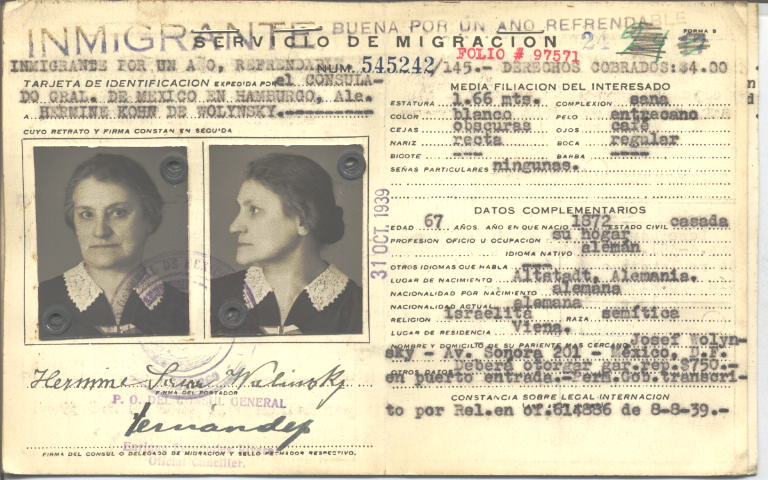 INMIGRANTE
BUENA POR UN AÑO REFRENDABLE
SERVICIO DE MIGRACION
FORMA 5
FOLIO # 97571
INMIGRANTE POR UN AÑO, REFRENDA
NUM. 545242/145.- DERECHOS COBRADOS:$4.00
TARJETA DE IDENTIFICACION EXPEDIDA POR el CONSULA-
DO GRAL. DE MEXICO EN HAMBURGO, Ale.
A HERMINE KOHN DE WOLYNSKY.
CUYO RETRATO Y FIRMA CONSTAN EN SEGUIDA
31 OCT. 1939
Hermine Sara Wolinsky
FIRMA DEL PORTADOR
P. O. DEL CONSUL GENERAL
Canciller.
FIRMA DEL CONSUL O DELEGADO DE MIGRACION Y SELLO FECHADOR RESPECTIVO.
MEDIA FILIACION DEL INTERESADO
ESTATURA 1.66 mts. COMPLEXION sana
COLOR blanco PELO entrecano
CEJAS obscuras OJOS café
NARIZ recta BOCA regular
BIGOTE --- BARBA ---
SEÑAS PARTICULARES ningunas.
DATOS COMPLEMENTARIOS
EDAD 67 AÑOS. AÑO EN QUE NACIO 1872 ESTADO CIVIL casada
PROFESION OFICIO U OCUPACION su hogar
IDIOMA NATIVO alemán
OTROS IDIOMAS QUE HABLA ---
LUGAR DE NACIMIENTO Altstadt, Alemania.
NACIONALIDAD POR NACIMIENTO alemana
NACIONALIDAD ACTUAL alemana
RELIGION israelita RAZA semítica
LUGAR DE RESIDENCIA Viena.
NOMBRE Y DOMICILIO DE SU PARIENTE MAS CERCANO Josef Wolyn-
sky - Av. Sonora 201 - México, D. F.
OTROS DATOS Deberá otorgar gar.rep.$750.-
en puerto entrada.-Perm.Gob.transcri-
CONSTANCIA SOBRE LEGAL INTERNACION
to por Rel.en of.614886 de 8-8-39.-